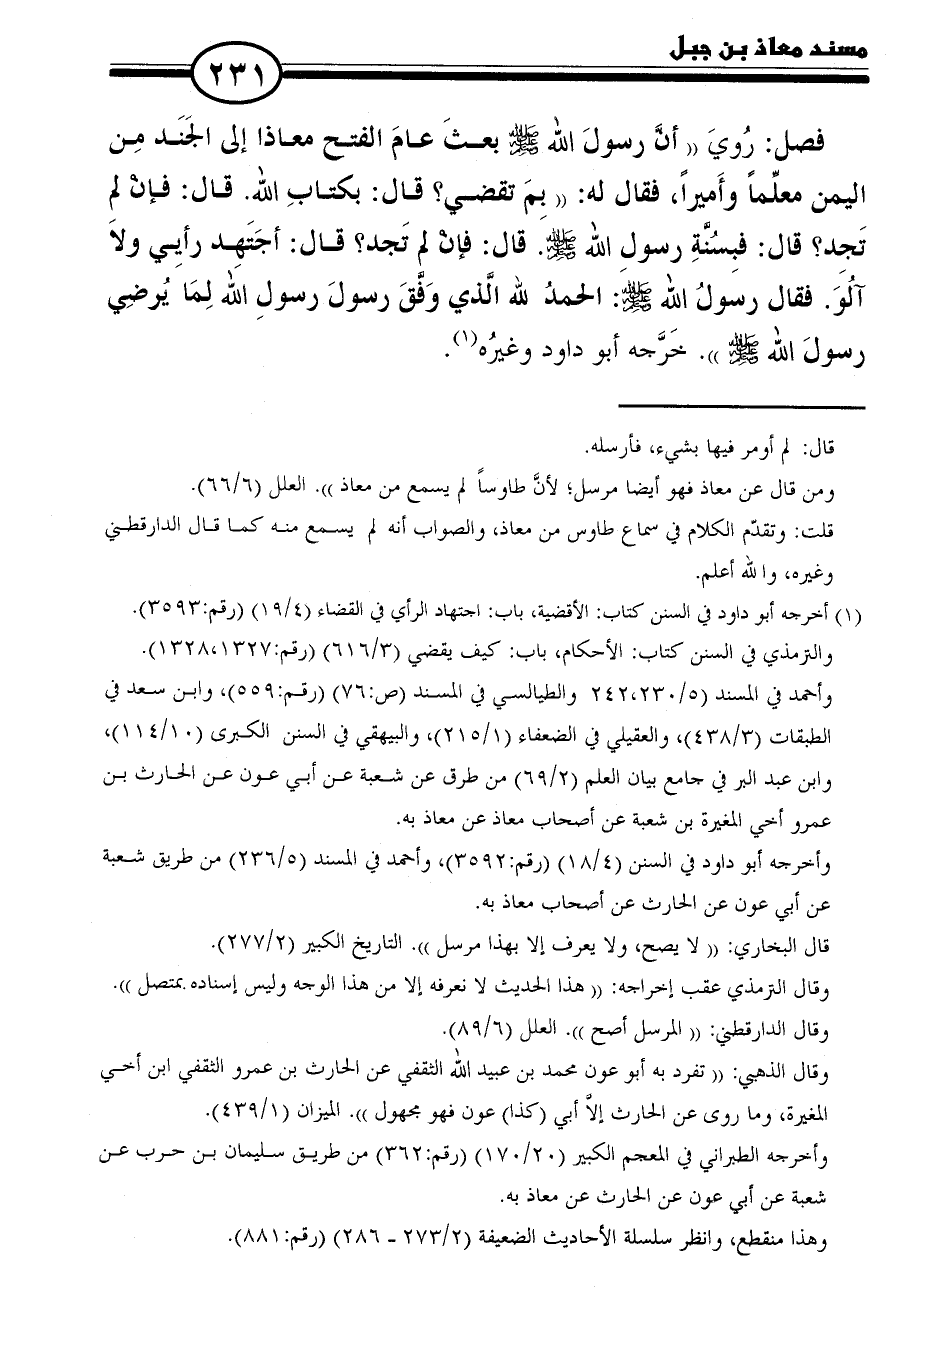 مسند معاذ بن جبل
٢٣١
فصل: رُويَ (( أنَّ رسولَ الله ﷺ بعثَ عامَ الفتح معاذا إلى الجَنَد مِن
اليمن معلِّماً وأَميراً، فقال له: (( بِمَ تقضي؟ قال: بكتابِ الله. قال: فإنْ لم
تَجِد؟ قال: فبِسُنَّةِ رسولِ الله ﷺ. قال: فإنْ لم تَجد؟ قال: أجتَهِد رأيي ولاَ
آلُوَ. فقال رسولُ الله ﷺ: الحمدُ لله الَّذي وَفَّقَ رسولَ رسولِ الله لِمَا يُرضِي
رسولَ الله ﷺ )). خَرَّجه أبو داود وغيرُه(١).
قال: لم أومر فيها بشيء، فأرسله.
ومن قال عن معاذ فهو أيضا مرسل؛ لأنَّ طاوساً لم يسمع من معاذ )). العلل (٦٦/٦).
قلت: وتقدّم الكلام في سماع طاوس من معاذ، والصواب أنه لم يسمع منه كما قال الدارقطني
وغيره، والله أعلم.
(١) أخرجه أبو داود في السنن كتاب: الأقضية، باب: اجتهاد الرأي في القضاء (١٩/٤) (رقم:٣٥٩٣).
والترمذي في السنن كتاب: الأحكام، باب: كيف يقضي (٦١٦/٣) (رقم:١٣٢٨،١٣٢٧).
وأحمد في المسند (٢٤٢،٢٣٠/٥ والطيالسي في المسند (ص:٧٦) (رقم:٥٥٩)، وابن سعد في
الطبقات (٤٣٨/٣)، والعقيلي في الضعفاء (٢١٥/١)، والبيهقي في السنن الكبرى (١١٤/١٠)،
وابن عبد البر في جامع بيان العلم (٦٩/٢) من طرق عن شعبة عن أبي عون عن الحارث بن
عمرو أخي المغيرة بن شعبة عن أصحاب معاذ عن معاذ به.
وأخرجه أبو داود في السنن (١٨/٤) (رقم:٣٥٩٢)، وأحمد في المسند (٢٣٦/٥) من طريق شعبة
عن أبي عون عن الحارث عن أصحاب معاذ به.
قال البخاري: (( لا يصح، ولا يعرف إلا بهذا مرسل )). التاريخ الكبير (٢٧٧/٢).
وقال الترمذي عقب إخراجه: (( هذا الحديث لا نعرفه إلا من هذا الوجه وليس إسناده بمتصل )).
وقال الدارقطني: (( المرسل أصح )). العلل (٨٩/٦).
وقال الذهبي: (( تفرد به أبو عون محمد بن عبيد الله الثقفي عن الحارث بن عمرو الثقفي ابن أخي
المغيرة، وما روى عن الحارث إلاَّ أبي (كذا) عون فهو مجهول )). الميزان (٤٣٩/١).
وأخرجه الطبراني في المعجم الكبير (١٧٠/٢٠) (رقم:٣٦٢) من طريق سليمان بن حرب عن
شعبة عن أبي عون عن الحارث عن معاذ به.
وهذا منقطع، وانظر سلسلة الأحاديث الضعيفة (٢٧٣/٢ ـ ٢٨٦) (رقم:٨٨١).